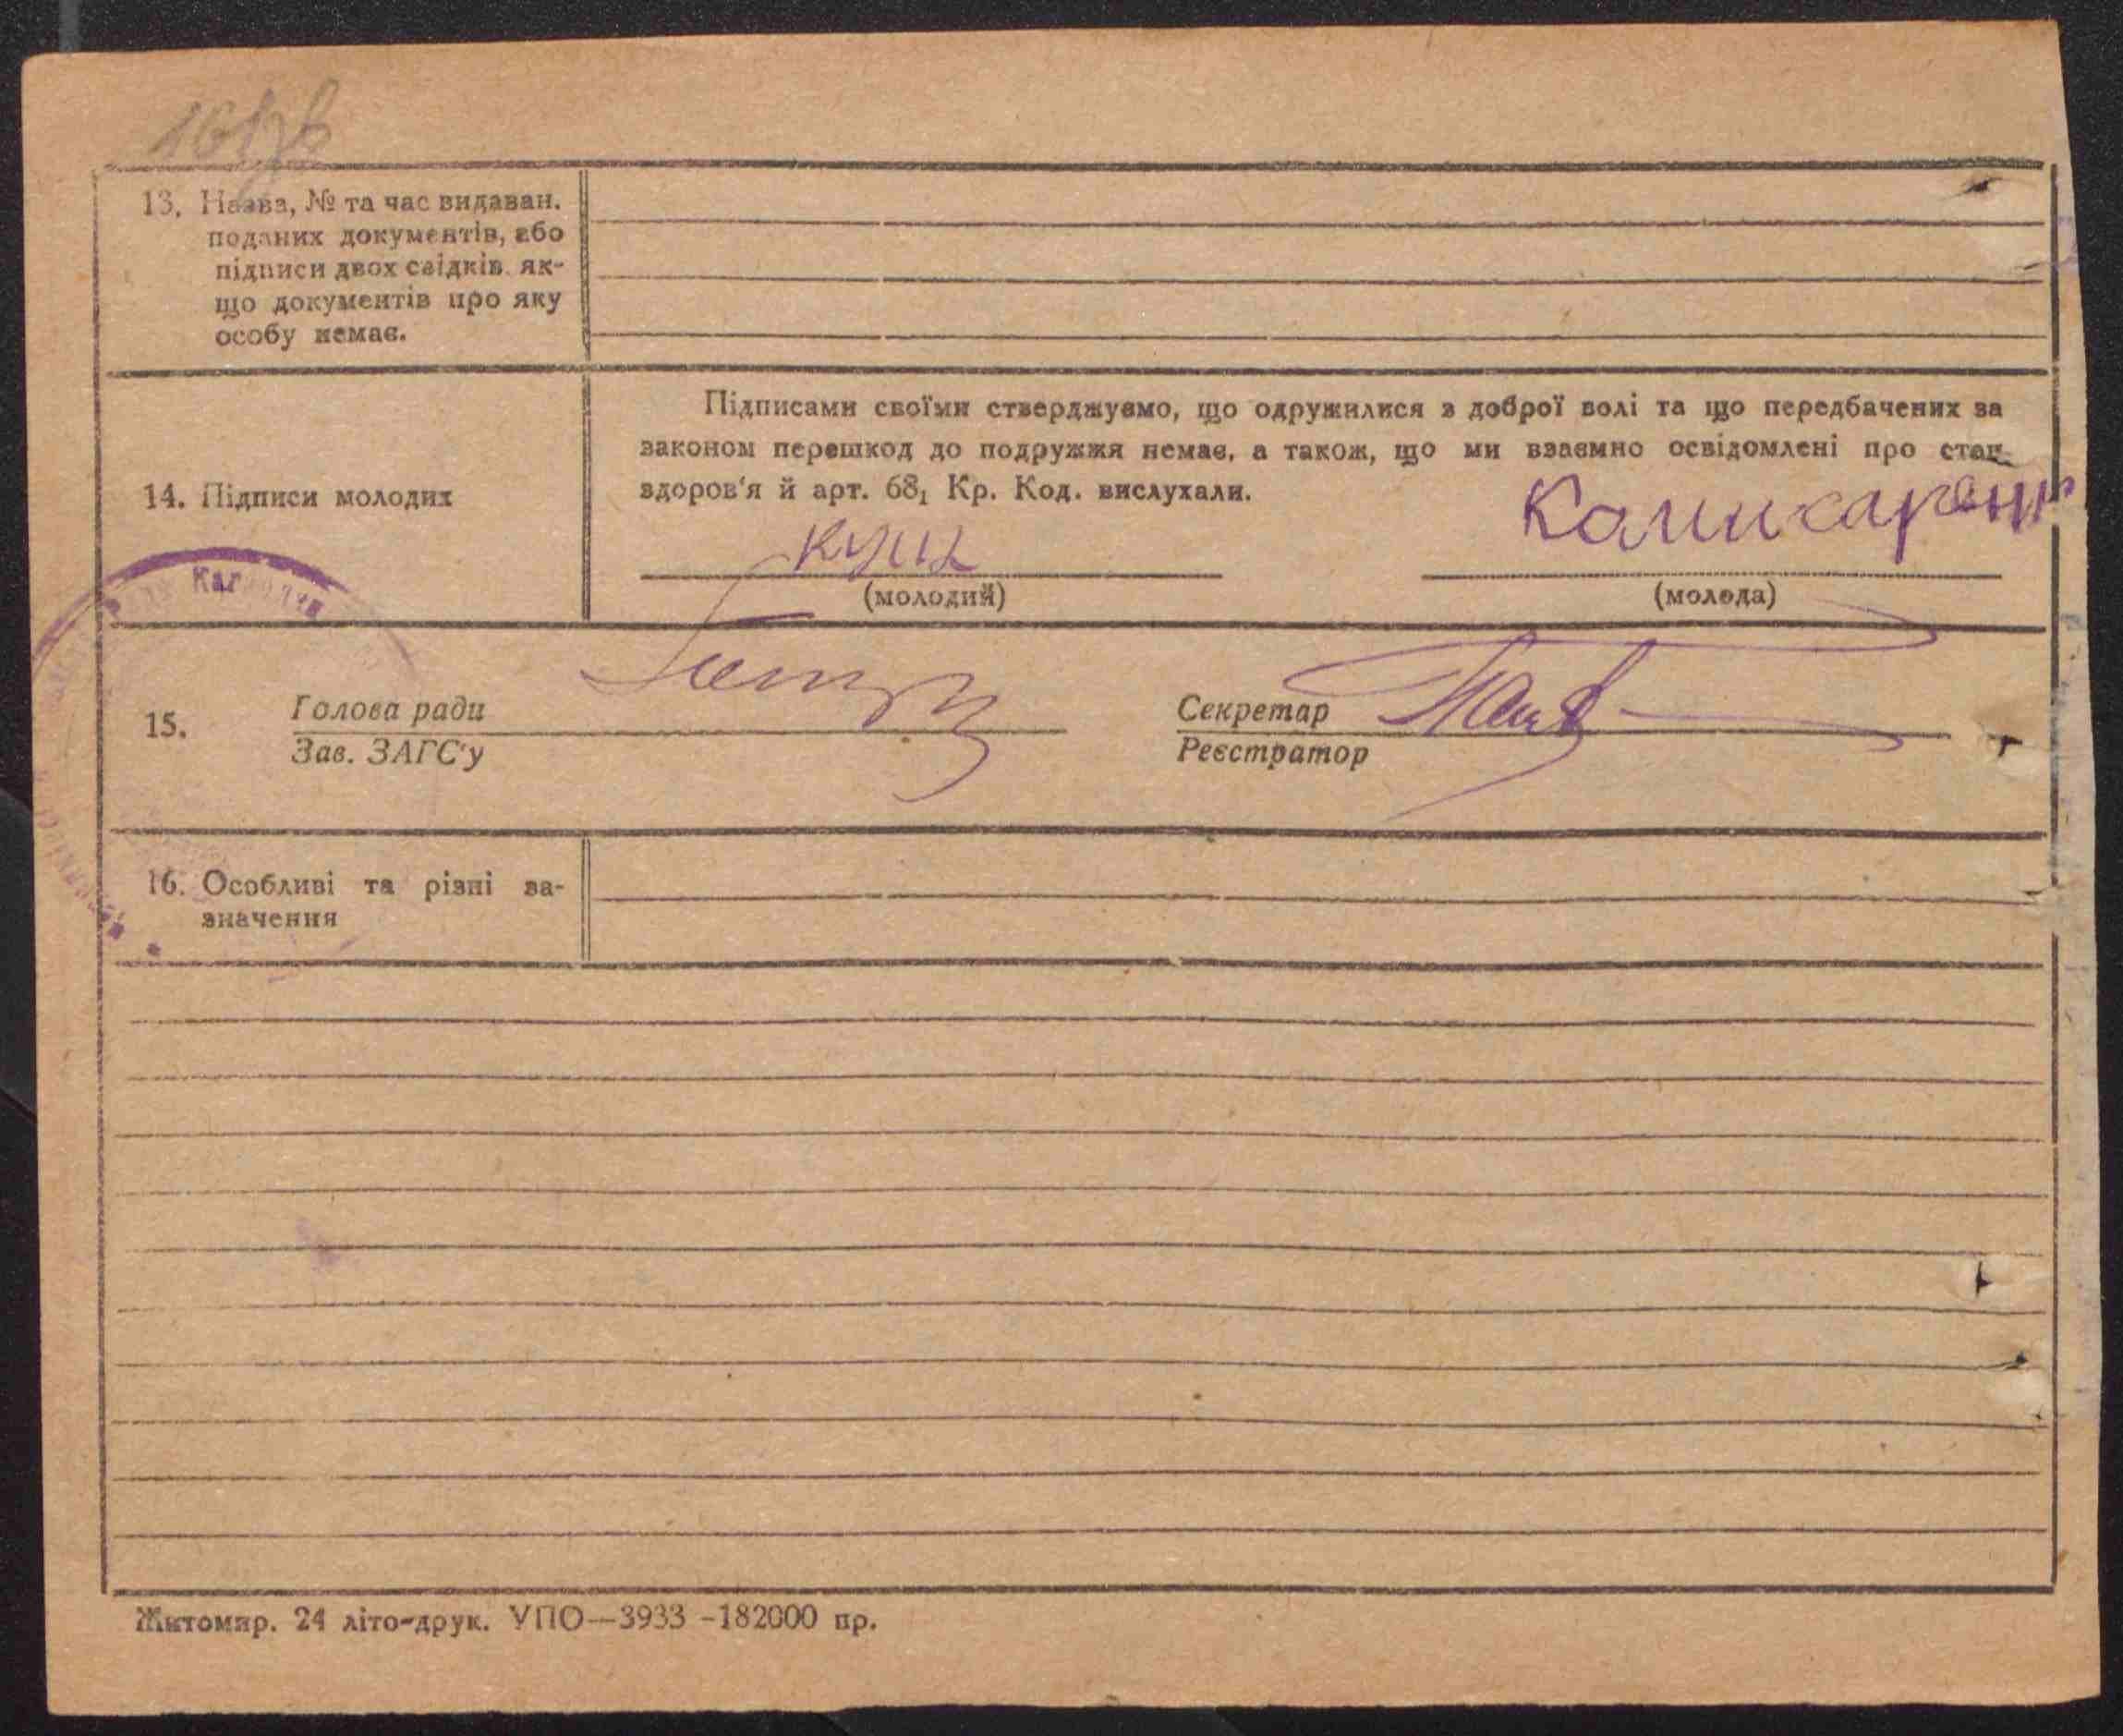 13. Назва, № та час видаван.
поданих документів, або
підписи двох свідків, як-
що документів про яку
особу немає.
14. Підписи молодих
Підписами своїми стверджуємо, що одружилися з доброї волі та що передбачених за
законом перешкод до подружжя немає, а також, що ми взаємно освідомлені про стан
здоров'я й арт. 68₁ Кр. Код. вислухали.
(молодий)
(молода)
15.
Голова ради
Зав. ЗАГС'у
Секретар
Реєстратор
16. Особливі та різні за-
значення
Житомир. 24 літо-друк. УПО—3933 -182000 пр.